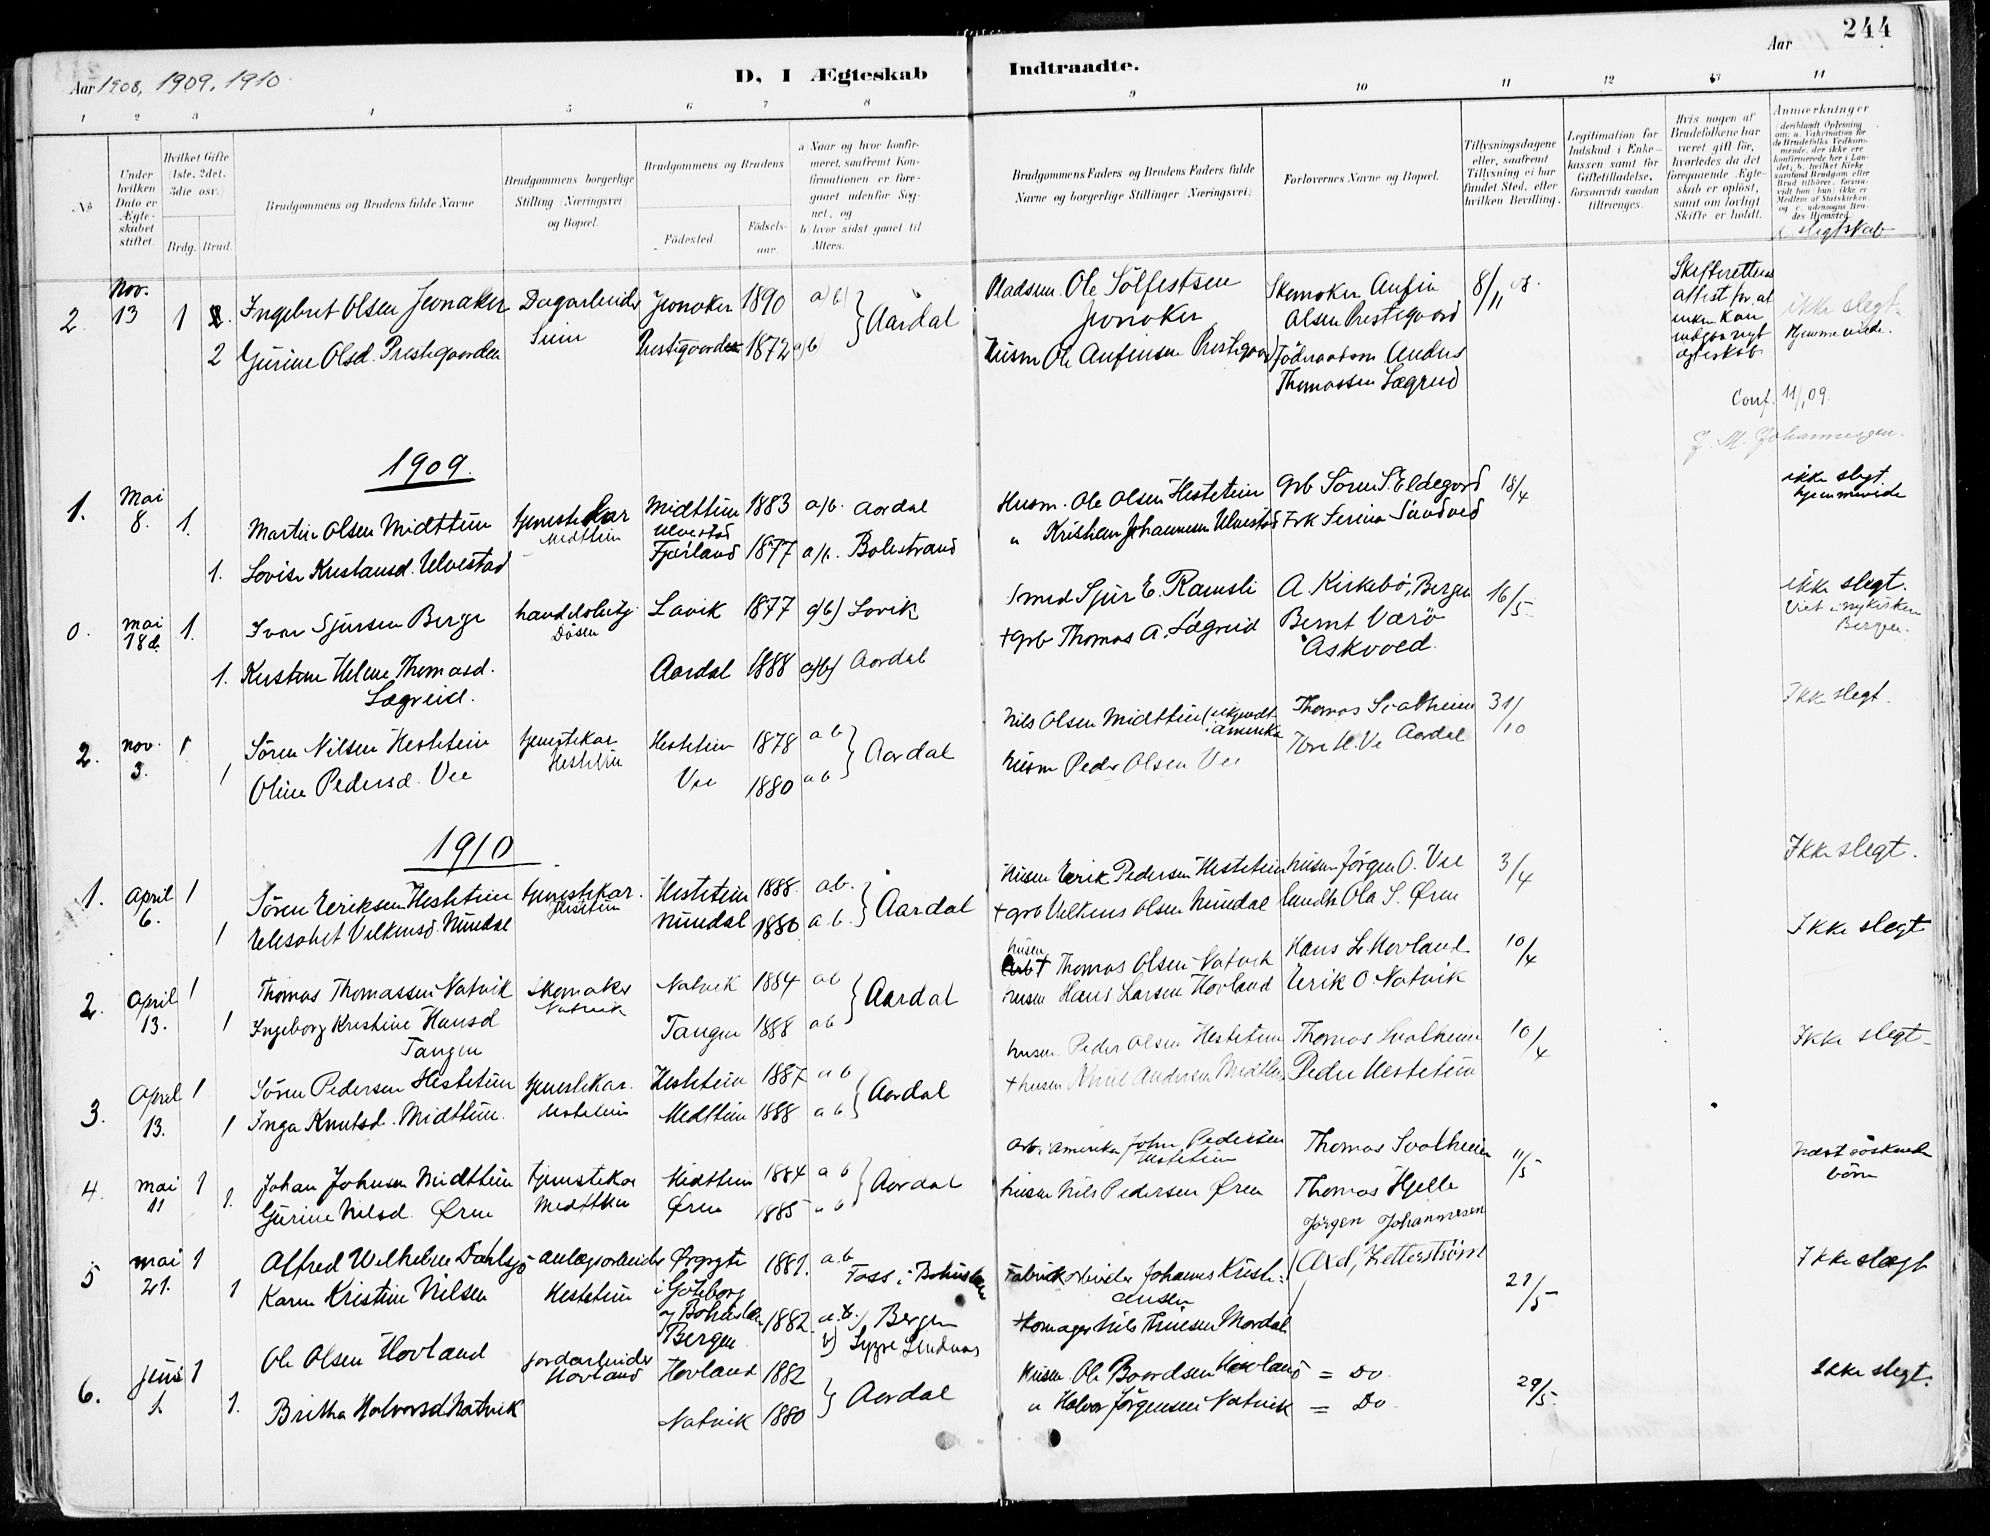 244
Aar 1908, 1909, 1910
D, I Ægteskab Indtraadte.
Aar
1 2 3 4 5 6 7 8 9 10 11 12 13 14
No
Under hvilken Dato er Ægteskabet stiftet.
Hvilket Gifte (1ste, 2det, 3die osv.
Brdg. Brud.
Brudgommens og Brudens fulde Navne
Brudgommens borgerlige Stilling (Næringsvei) og Bopæl.
Brudgommens og Brudens
Fødested.
Fødselsaar
a Naar og hvor konfirmeret, saafremt Konfirmationen er foregaaet udenfor Sognet, og
b hvor sidst gaaet til Alters.
Brudgommens Faders og Brudens Faders fulde Navne og borgerlige Stillinger (Næringsvei)
Forlovernes Navne og Bopæl.
Tillysningsdagene eller, saafremt Tillysning ei har fundet Sted, efter hvilken Bevilling.
Legitimation for Indskud i Enkekassen samt for Giftetilladelse, forsaavidt saadan tiltrænges.
Hvis nogen af Brudefolkene har været gift før, hvorledes da det foregaaende Ægteskab er opløst, samt om lovligt Skifte er holdt.
Anmærkninger
slegtskab
2. Nov. 13 1 2. Ingebret Olsen Jevnaker Dagarbeider Seim Jevnaker 1890 a) b) } Aardal Pladsm. Ole Sølfestsen Jevnaker Skomaker Anfin Olsen Prestegaard 8/11 08. Skifterettens attest for at enken kan indgaa nyt ægteskab ikke slegt. Hjemmevide.
2 Gurine Olsd. Prestegaarden Prestegaarden 1872 a) b) Husm Ole Anfinsen Prestegaard Føderaadsm Anders Thomassen Lægreid
Conf. 11/1 09.
J. M. Johannessen.
1909.
1. Mai 8. 1. Martin Olsen Midttun tjenestekar Midttun Midttun 1883 a/b. Aardal Husm. Ole Olsen Hestetein Grb Søren S. Eldegard 18/4 ikke slegt. hjemmevide
1. Lovise Kristiansd. Ulvestad Ulvestad Fjærland 1877 a/b. Balestrand " Kristian Johannesen Ulvestad Frk Serina Sandved
0. mai 18de 1. Ivar Sjursen Berge handelsbetj. Døsen Lavik 1877 a) b) Lavik Smed Sjur E. Ramsli A. Kirkebø, Bergen 16/5 ikke slegt. Viet i nykirken Bergen.
1. Kristine Helene Thomasd. Lægreid. Aardal 1888 a) b) Aardal +grb Thomas A. Lægreid Bernt Værø Askvoed.
2. nov. 3. 1 Søren Nilsen Hestetein tjenestekar Hestetein Hestetein 1878 a b } Aardal Nils Olsen Midttun (ukjendt i Amerika Thomas Svalheim 31/10 Ikke slegt.
1 Oline Pedersd. Vee Vee 1880 a b husm Peder Olsen Vee Iver H. Ve Aardal
1910
1. April 6. 1 Søren Eriksen Hestetein tjenestekar. Hestetein Hestetein 1888. a b. } Aardal husm Erik Pedersen Hestetein husm Jørgen O. Vee 3/4 Ikke slegt.
1 Elisabet Villumsd. Nundal Nundal 1880 a b. +grb Villums Olsen Nundal landh Ola S. Øren
2. April 13. 1 Thomas Thomassen Natvik Skomaker Natvik Natvik 1884 a b } Aardal husm + Thomas Olsen Natvik Hans L. Hovland 10/4 Ikke slegt
1 Ingeborg Kristine Hansd Tangen Tangen 1888 a b husm Hans Larsen Hovland Erik O. Natvik
3. April 13. 1 Søren Pedersen Hestetein tjenestekar. Hestetein Hestetein 1887 a b } Aardal husm. Peder Olsen Hestetein Thomas Svalheim 10/4 Ikke slegt
1 Inga Knutsd. Midttun. Midttun 1888 a b. +husm Knut Andersen Midttun Peder Hestetein
4. mai 11 1 Johan Johnsen Midttun tjenestekar Midttun Midttun 1884 a b } Aardal Arb. i Amerika John Pedersen Hestetein Thomas Svalheim 11/5 Næst søskendebørn
1. Gurine Nilsd. Øren Øren 1885 a b husm Nils Pedersen Øren Thomas Hjelle
Jørgen Johannesen
5 mai 21. 1 Alfred Wilhelm Dahlsjø anlægsarbeider Hestetein i Göteborg og Bohuslen 1881. a. b Foss i Bohuslen Fabrikarbeider Johannes Kristiansen Axel, Zetterström 21/5 Ikke slægt
1 Karen Kristine Nilsen Bergen 1882 a. b.) Bergen Mordal
6. juni 1. 1 Ole Olsen Hovland Jordarbeider Hovland Hovland 1882 } Aardal Husm. Ole Baardsen Hovland = Do. 29/5. Ikke slegt.
1. Britha Halvorsd Natvik Natvik 1880 " Halvor Jørgensen Natvik = Do